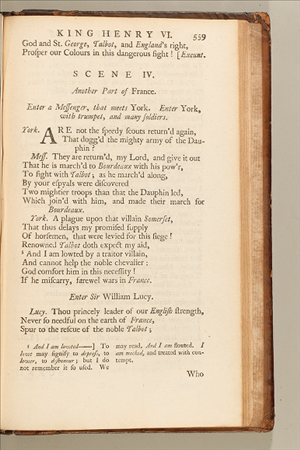 KING HENRY VI. 559
God and St. George, Talbot, and England's right,
Prosper our Colours in this dangerous fight! [Exeunt.
SCENE IV.
Another Part of France.
Enter a Messenger, that meets York. Enter York,
with trumpet, and many soldiers.
York. ARE not the speedy scouts return'd again,
That dogg'd the mighty army of the Dau-
phin?
Mess. They are return'd, my Lord, and give it out
That he is march'd to Bourdeaux with his pow'r,
To fight with Talbot; as he march'd along,
By your espyals were discovered
Two mightier troops than that the Dauphin led,
Which join'd with him, and made their march for
Bourdeaux.
York. A plague upon that villain Somerset,
That thus delays my promised supply
Of horsemen, that were levied for this siege!
Renowned Talbot doth expect my aid,
¹ And I am lowted by a traitor villain,
And cannot help the noble chevalier:
God comfort him in this necessity!
If he miscarry, farewel wars in France.
Enter Sir William Lucy.
Lucy. Thou princely leader of our English strength,
Never so needful on the earth of France,
Spur to the rescue of the noble Talbot;
¹ And I am lowted——] To
lowt may signify to depress, to
lower, to dishonour; but I do
not remember it so used. We
may read, And I am flouted. I
am mocked, and treated with con-
tempt.
Who